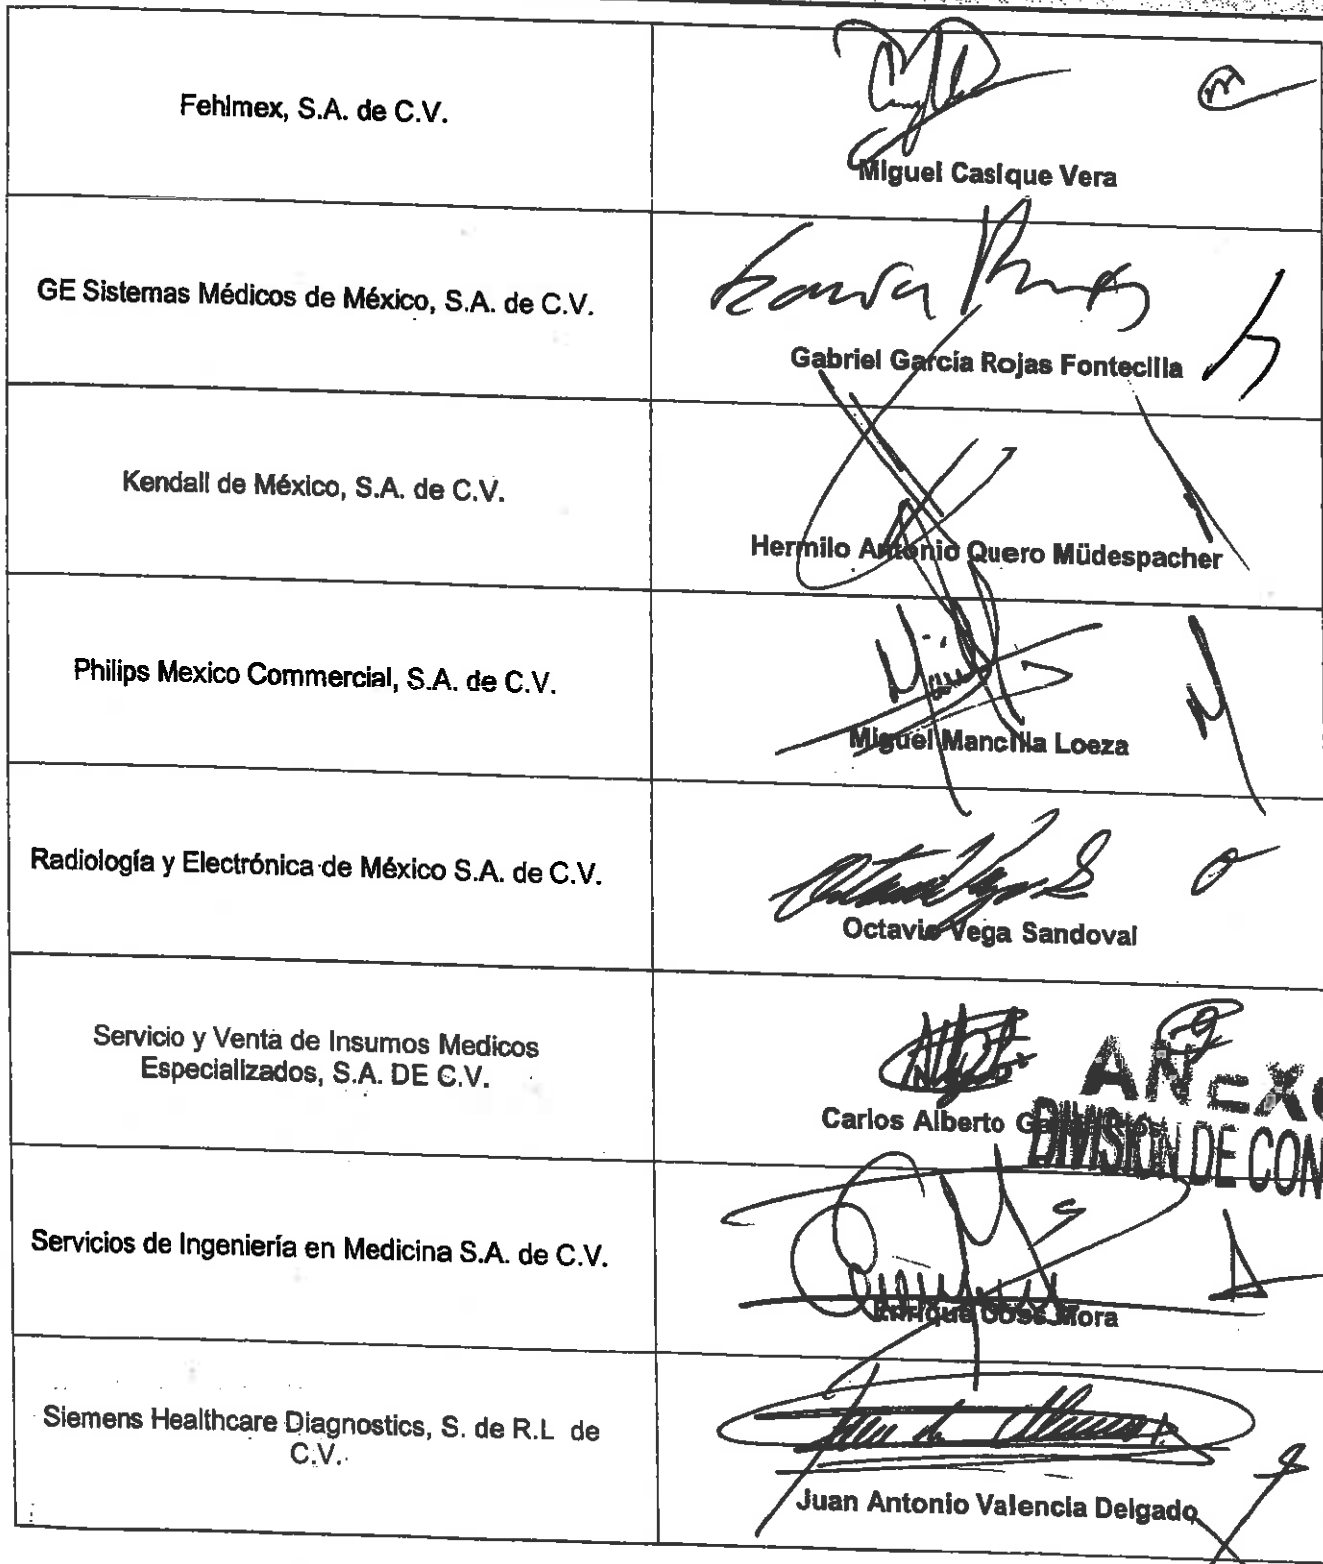 Fehlmex, S.A. de C.V.
Miguel Casique Vera
GE Sistemas Médicos de México, S.A. de C.V.
Gabriel García Rojas Fontecilla
Kendall de México, S.A. de C.V.
Hermilo Antonio Quero Müdespacher
Philips Mexico Commercial, S.A. de C.V.
Miguel Mancilla Loeza
Radiología y Electrónica de México S.A. de C.V.
Octavio Vega Sandoval
Servicio y Venta de Insumos Medicos
Especializados, S.A. DE C.V.
Carlos Alberto
ANEXO
DIVISION DE CON
Servicios de Ingeniería en Medicina S.A. de C.V.
Enrique José Mora
Siemens Healthcare Diagnostics, S. de R.L de
C.V.
Juan Antonio Valencia Delgado